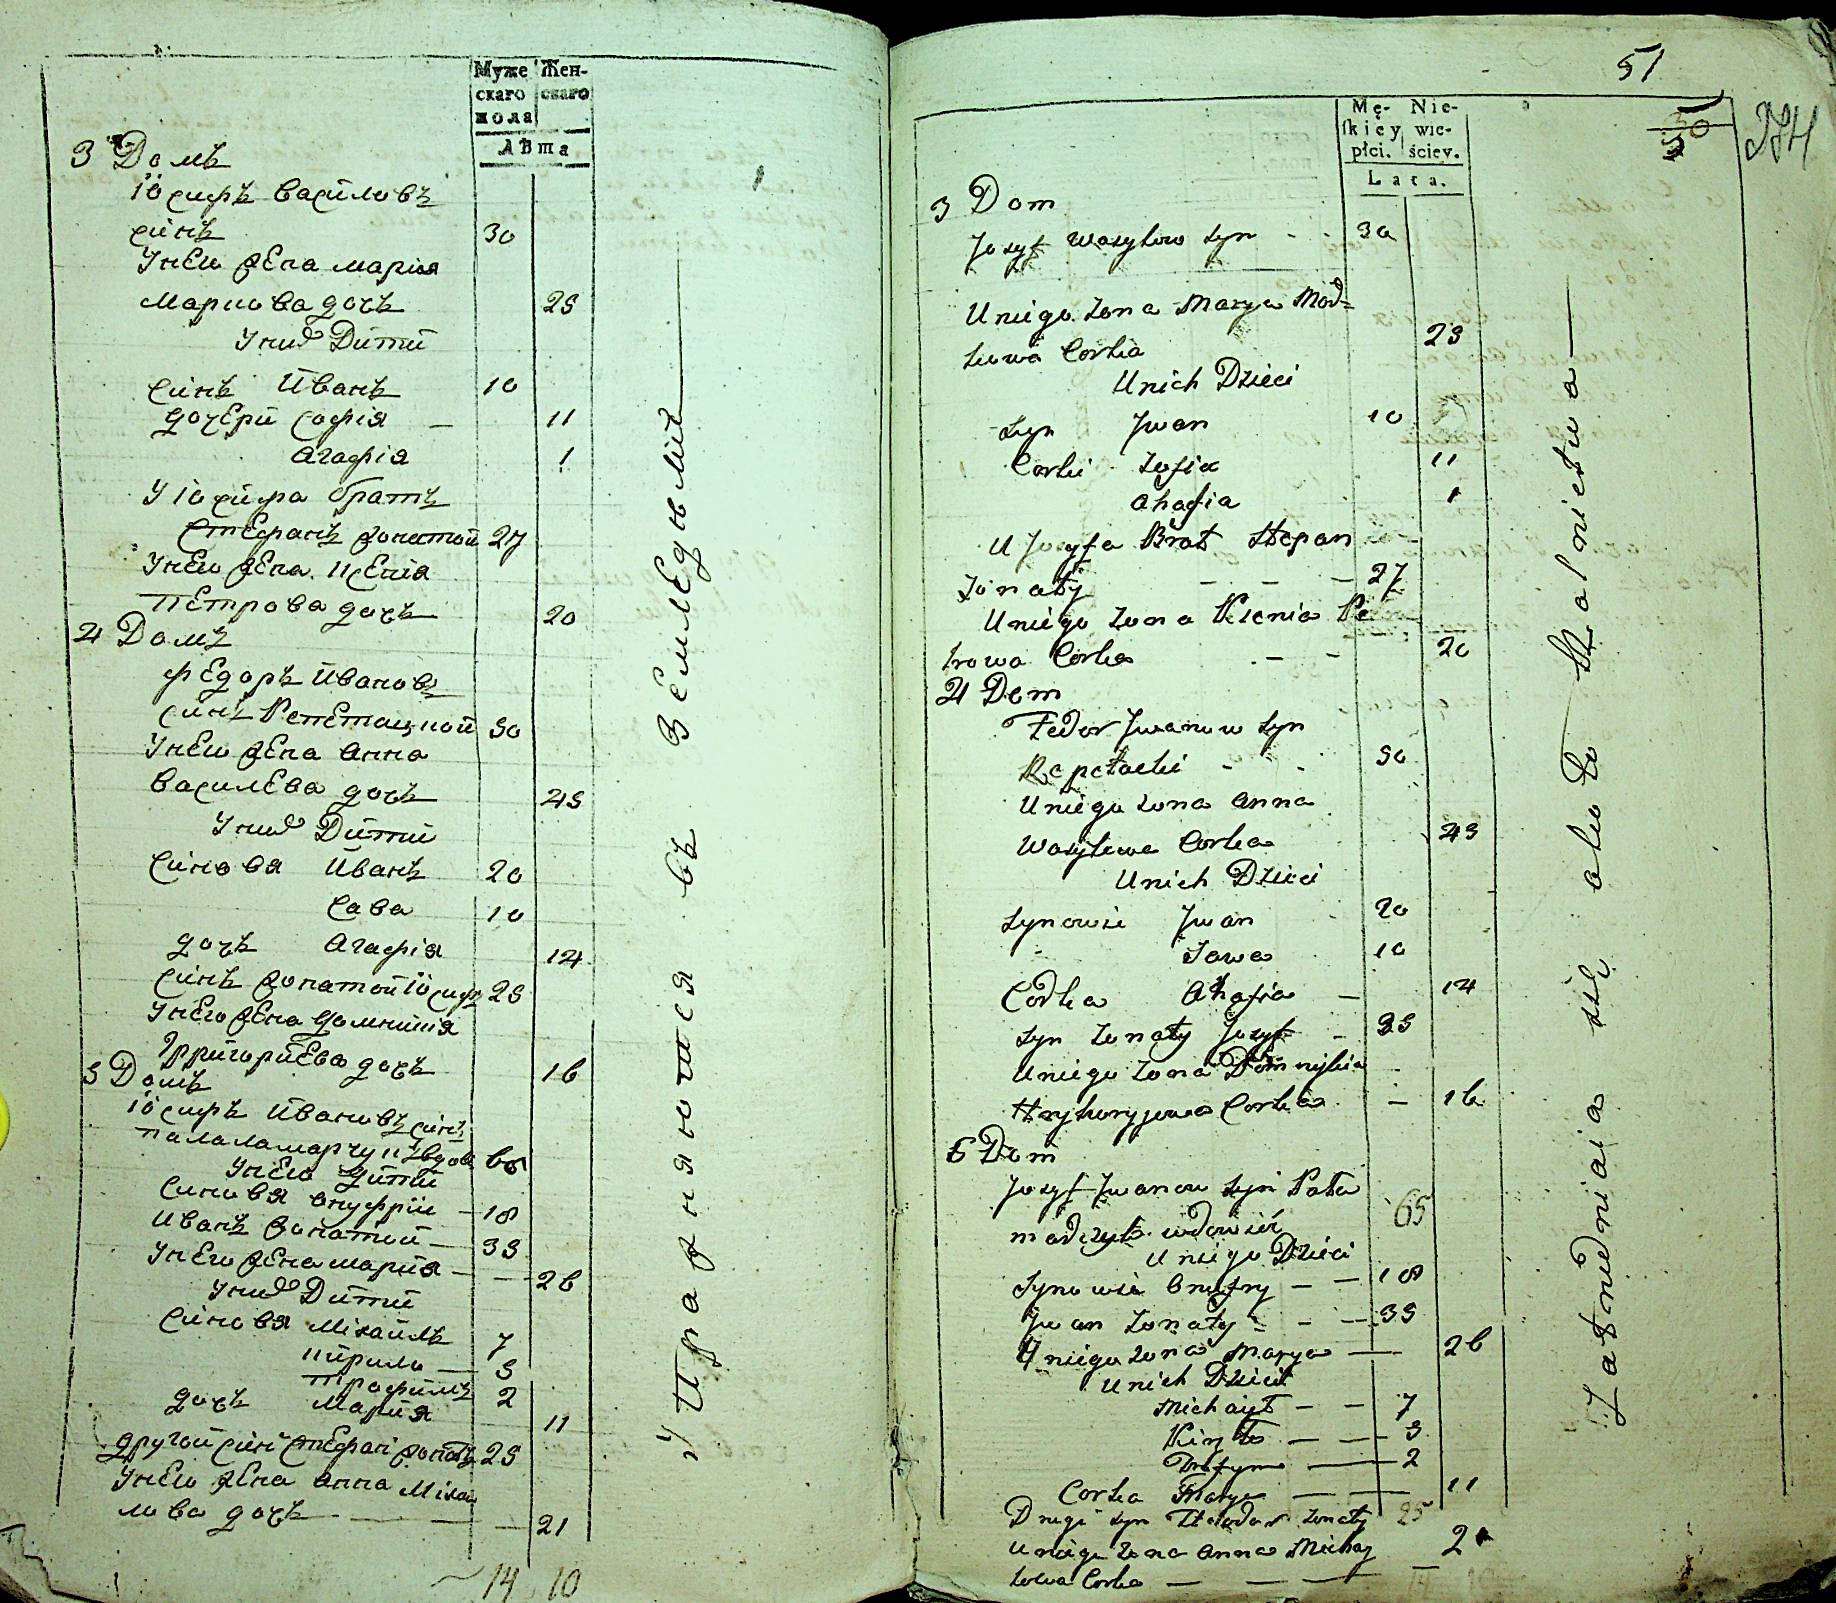 Муже
скаго
пола
Жен-
скаго
Лѣта
3 Домъ
Іосифъ Василовъ
синъ 30
Унего жена мария
Маркова дочъ 25
Уних Дитии
Синъ Иванъ 10
дочери Софія — 11
Агафія 1
У Іосифа братъ
Стефанъ жонатой 27
Унего жена Ксенія
Петрова дочъ 20
4 Домъ
Федоръ Ивановъ
синъ Репетацкой 50
Унего жена Анна
Василева дочъ 45
Уних Дитии
Синовя Иванъ 20
Сава 10
дочъ Агафія 14
Синъ жонатой Іосифъ 25
Унего жена Домникия
Григориева дочъ 16
5 Домъ
Іосифъ Ивановъ синъ
паламарчукъ вдовъ 65
Унего Дитии
Синовя Онуфрии — 18
Иванъ жонатои — 35
Унего жена мария — 26
Уних Дитии
Синовя Михаилъ 7
Кирило — 5
Трофимъ 2
дочъ Мария 11
другой синъ Стефан жонатъ 25
Унего жена Анна Михаи
лова дочъ — 21
14 10
Упражняются въ Земледелие
51
50
Mę-
skiey
płci.
Nie-
wie-
ściey.
Lata.
3 Dom
Josyf Wasylow syn 30
Uniego Zona Marya Mod=
kowa Corka 25
Unich Dzieci
Syn Jwan 10
Corki Zofia 11
Ahafia 1
U Josyfa Brat Stepan
Zonaty — — — 27
Uniego Zona Ksenia Pe
trowa Corka — — 20
4 Dom
Fedor Jwanow syn
Repetacki - - 50
Uniego Zona Anna
Wasylewa Corka 45
Unich Dzieci
Synowie Jwan 20
Sawa 10
Corka Ahafia — 14
Syn Zonaty Josyf - 25
Uniego Zona Domnikia
Hryhoryjewa Corka — 16
5 Dom
Josyf Jwanow syn Pała
marczuk wdowiec 65
Uniego Dzieci
Synowie Onufry — — 18
Jwan Zonaty — — 35
Uniego Zona Marya — 26
Unich Dzieci
Michaył — — 7
Kiryło — — 5
Trofym — 2
Corka Marya — — 11
Drugi syn Zonaty 25
Uniego Zona Anna Michaj
łowa Corka — — — 21
Zatrudniaia się około Rolnictwa